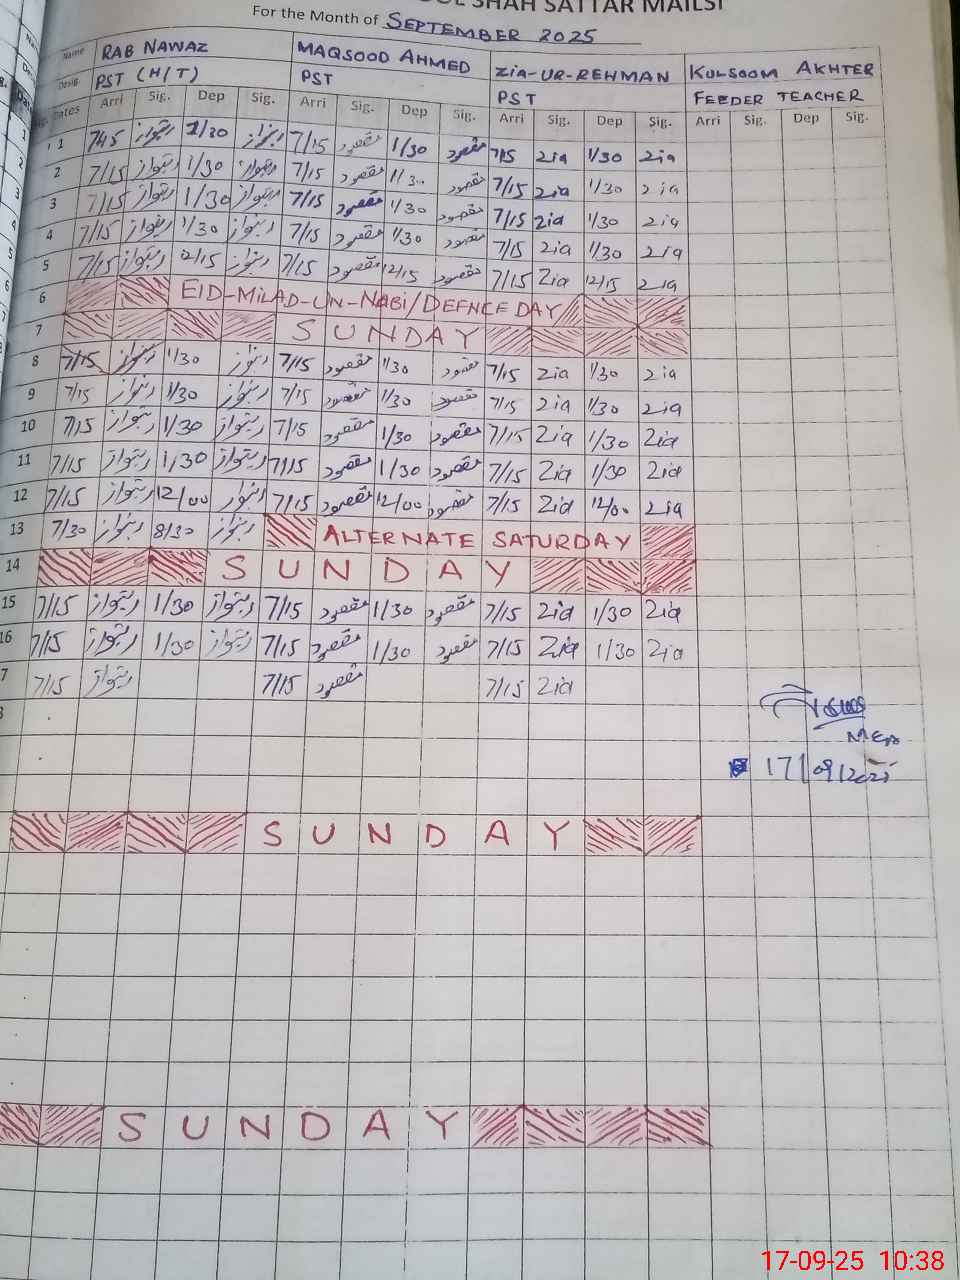 SHAH SATTAR MAILSI
For the Month of SEPTEMBER 2025
Name RAB NAWAZ MAQSOOD AHMED ZIA-UR-REHMAN KULSOOM AKHTER
Desig. PST (H/T) PST PST FEEDER TEACHER
Dates Arri Sig. Dep Sig. Arri Sig. Dep Sig. Arri Sig. Dep Sig. Arri Sig. Dep Sig.
1 745 ربنواز 1/30 ربنواز 7/15 مقصود 1/30 مقصود 7/15 Zia 1/30 Zia
2 7/15 ربنواز 1/30 ربنواز 7/15 مقصود 1/30 مقصود 7/15 Zia 1/30 Zia
3 7/15 ربنواز 1/30 ربنواز 7/15 مقصود 1/30 مقصود 7/15 Zia 1/30 Zia
4 7/15 ربنواز 1/30 ربنواز 7/15 مقصود 1/30 مقصود 7/15 Zia 1/30 Zia
5 7/15 ربنواز 12/15 ربنواز 7/15 مقصود 12/15 مقصود 7/15 Zia 12/15 Zia
6 EID-MILAD-UN-NABI/DEFNCE DAY
7 SUNDAY
8 7/15 ربنواز 1/30 ربنواز 7/15 مقصود 1/30 مقصود 7/15 Zia 1/30 Zia
9 7/15 ربنواز 1/30 ربنواز 7/15 مقصود 1/30 مقصود 7/15 Zia 1/30 Zia
10 7/15 ربنواز 1/30 ربنواز 7/15 مقصود 1/30 مقصود 7/15 Zia 1/30 Zia
11 7/15 ربنواز 1/30 ربنواز 7/15 مقصود 1/30 مقصود 7/15 Zia 1/30 Zia
12 7/15 ربنواز 12/00 ربنواز 7/15 مقصود 12/00 مقصود 7/15 Zia 12/00 Zia
13 7/30 ربنواز 8/30 ربنواز ALTERNATE SATURDAY
14 SUNDAY
15 7/15 ربنواز 1/30 ربنواز 7/15 مقصود 1/30 مقصود 7/15 Zia 1/30 Zia
16 7/15 ربنواز 1/30 ربنواز 7/15 مقصود 1/30 مقصود 7/15 Zia 1/30 Zia
7 7/15 ربنواز 7/15 مقصود 7/15 Zia
MEA
17/09/2025
SUNDAY
SUNDAY
17-09-25 10:38